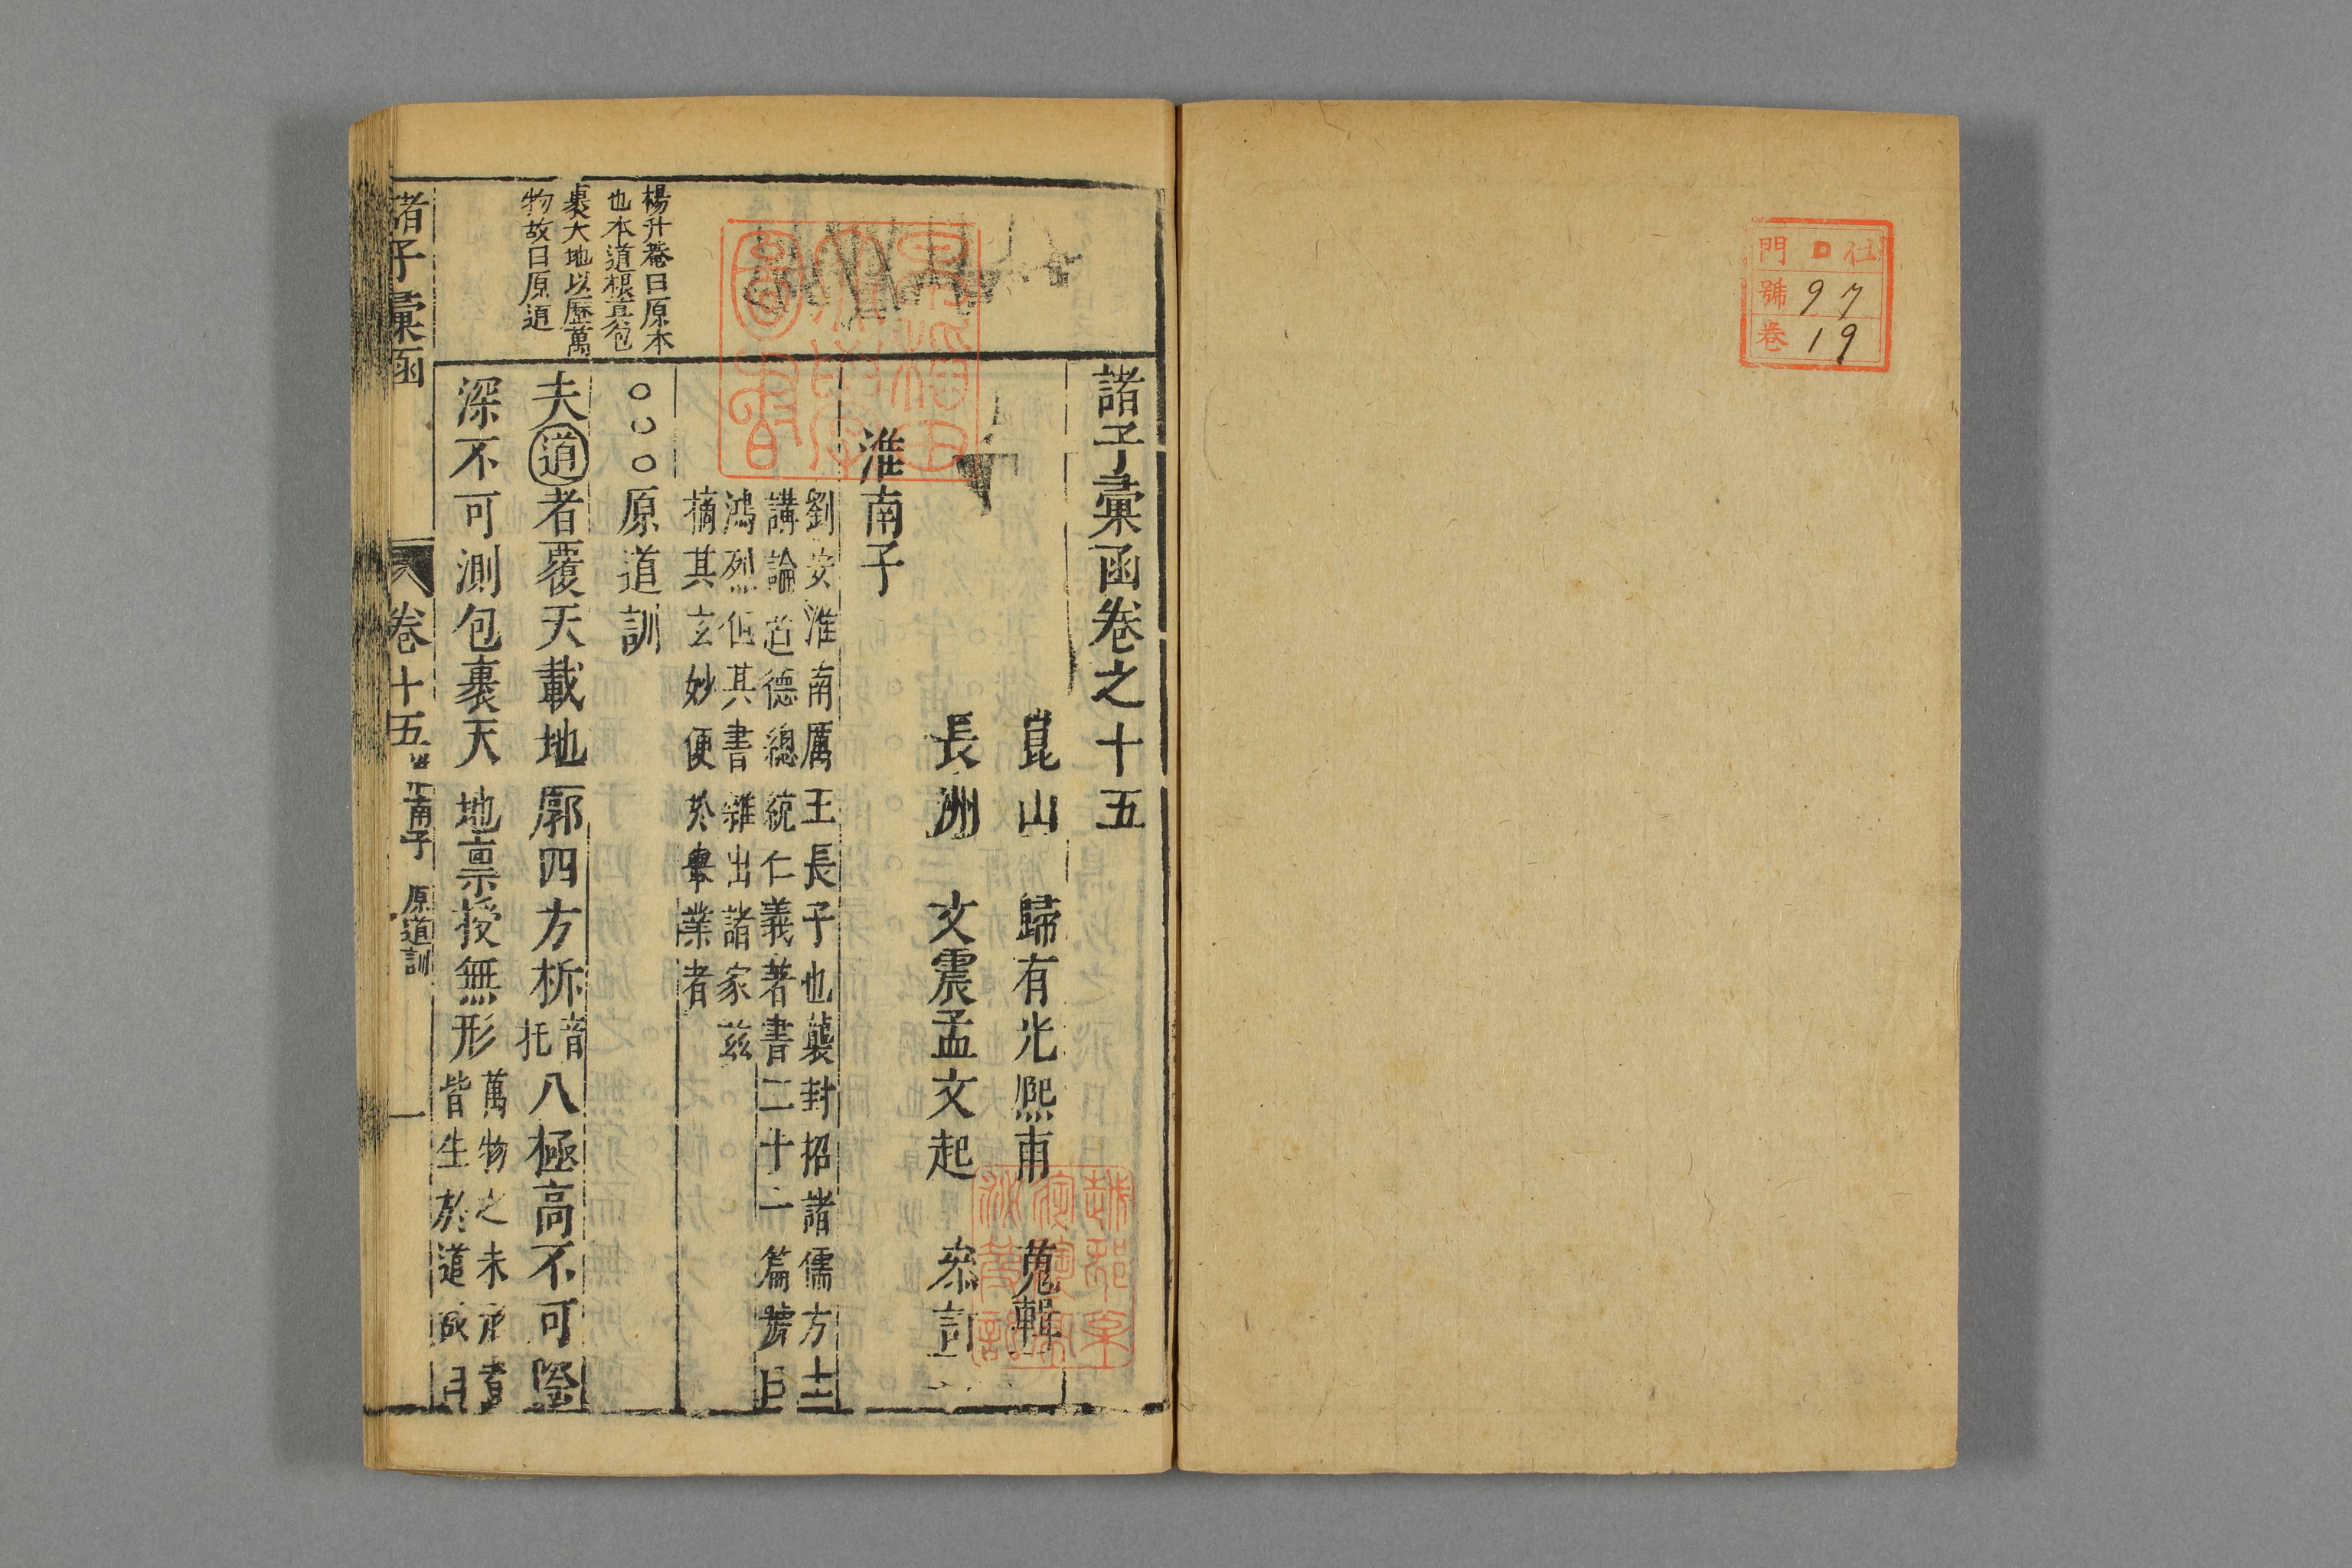 門 ロ 仕
號 97
卷 19
諸子彙函卷之十五
崑山 歸有光熙甫 蒐輯
長洲 文震孟文起 叅訂
淮南子
劉安淮南厲王長子也襲封招諸儒方士
講論道德總統仁義著書二十一篇號曰
鴻烈但其書雜出諸家茲
摘其玄妙便於舉業者
原道訓
楊升菴曰原本
也本道根真包
裹天地以歷萬
物故曰原道
夫道者覆天載地廓四方柝音托八極高不可際
深不可測包裹天地禀授無形萬物之未形者皆生於道故曰
諸子彙函 卷十五 淮南子 原道訓 一